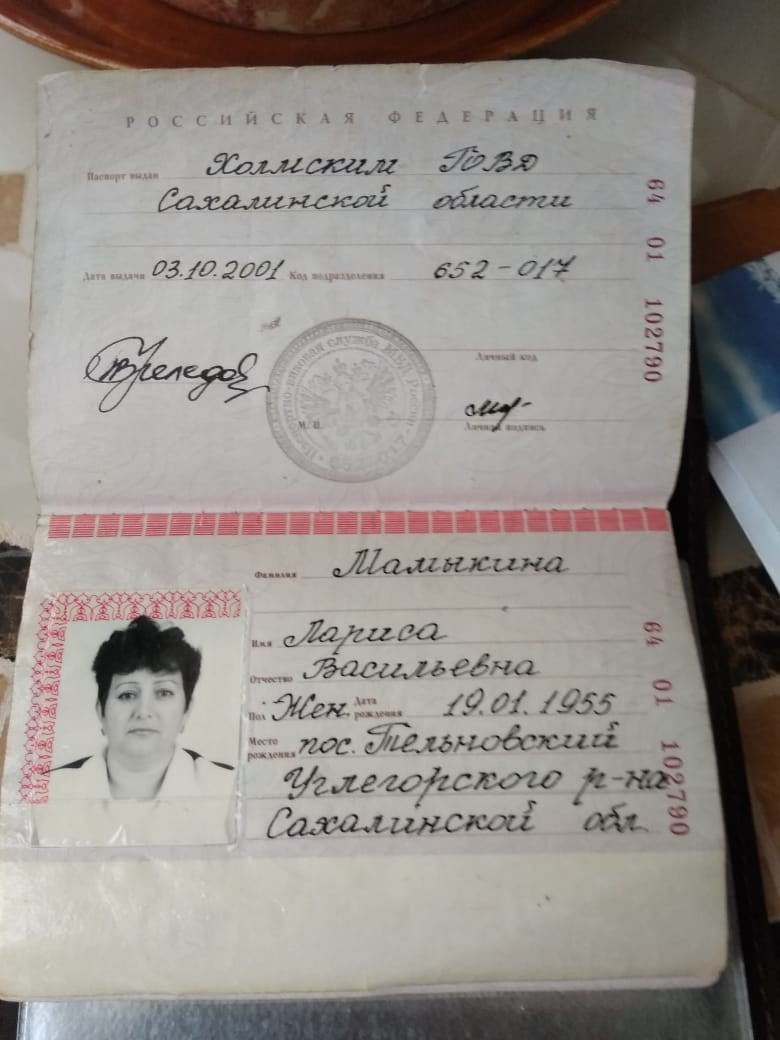 РОССИЙСКАЯ ФЕДЕРАЦИЯ
Паспорт выдан Холмским ГОВД
Сахалинской области
Дата выдачи 03.10.2001 Код подразделения 652-017
Личный код
М.П.
Личная подпись
Паспортно-визовая служба МВД России · 652-017
64 01 102790
Фамилия Мамыкина
Имя Лариса
Отчество Васильевна
Пол Жен. Дата рождения 19.01.1955
Место рождения пос. Тельновский
Углегорского р-на
Сахалинской обл.
64 01 102790